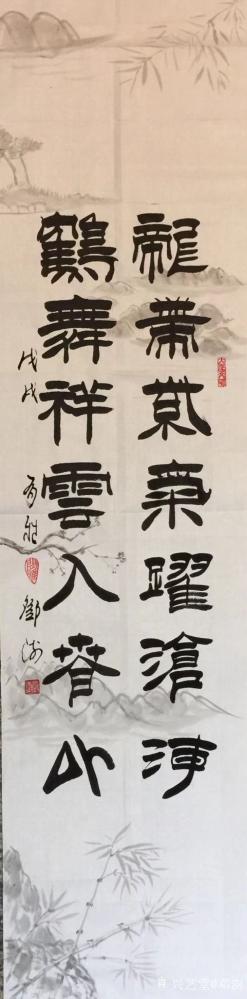 龍帶紫氣躍滄海
鶴舞祥雲入春山
戊戌